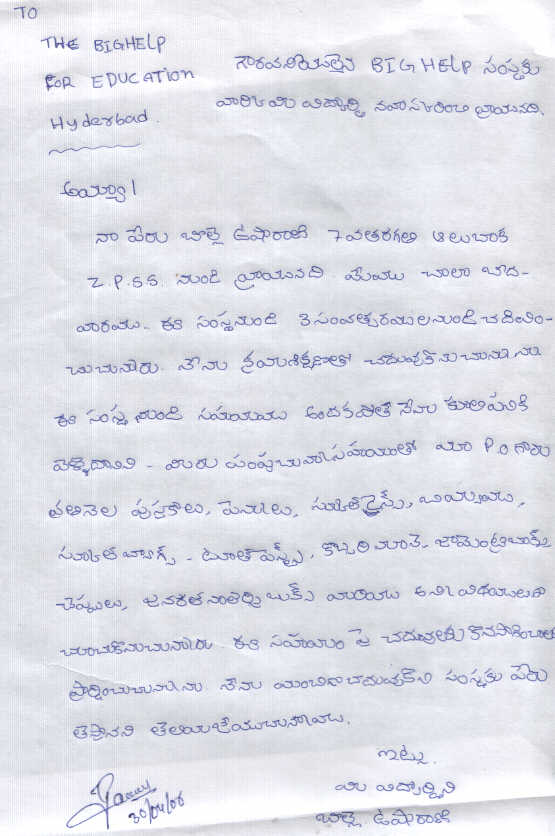 TO
THE BIGHELP
FOR EDUCATION
Hyderbad.
గౌరవనీయులైన BIG HELP సంస్థకు
వారికి మీ విద్యార్థి నమస్కరించి వ్రాయునది.
అయ్యా!
నా పేరు బొల్లె ఉషారాణి 7వతరగతి ఆలుబాక
Z.P.S.S. నుండి వ్రాయునది. మేము చాలా బీద-
వారము. ఈ సంస్థనుండి 3 సంవత్సరములనుండి చదివిం-
చుచున్నారు. నేను క్రమశిక్షణతో చదువుకొనుచున్నాను
ఈ సంస్థ నుండి సహాయము అందకపోతే నేను కూలిపనికి
వెళ్ళేదానిని - మీరు పంపుచున్న సహాయంతో మా P.O గారు
ప్రతినెల పుస్తకాలు, పెన్నులు, స్కూల్ డ్రెస్స్, బియ్యము,
స్కూల్ బ్యాగ్స్ - టూత్ పేస్ట్స్, కొబ్బరి నూనె, జామెంట్రిబాక్స్
చెప్పులు, జనరల్ నాలెడ్జి బుక్స్ మరియు అన్ని విధములుగా
చూచుకొనుచున్నారు. ఈ సహాయం పై చదువులకు కొనసాగించాలని
ప్రార్థించుచున్నాను. నేను మంచిగా చదువుకొని సంస్థకు పేరు
తెస్తానని తెలియజేయుచున్నాను.
ఇట్లు.
మీ విద్యార్థిని
బొల్లె ఉషారాణి
30/04/08